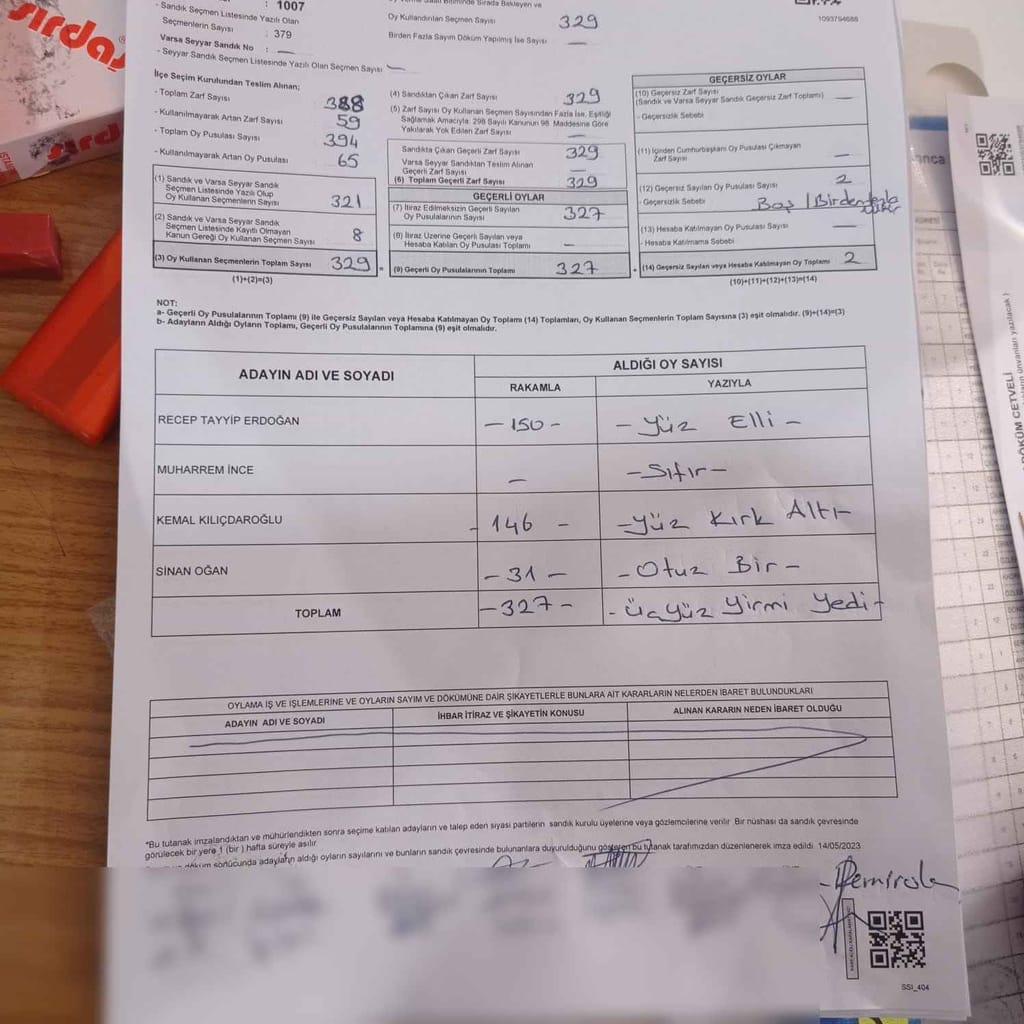 sırdaş
sırdaş
- Sandık Seçmen Listesinde Yazılı Olan
Seçmenlerin Sayısı : 379
: 1007
Varsa Seyyar Sandık No : —
- Seyyar Sandık Seçmen Listesinde Yazılı Olan Seçmen Sayısı —
Bitiminde Sırada Bekleyen ve
Oy Kullandırılan Seçmen Sayısı 329
Birden Fazla Sayım Döküm Yapılmış İse Sayısı —
1093794688
İlçe Seçim Kurulundan Teslim Alınan;
- Toplam Zarf Sayısı 388
- Kullanılmayarak Artan Zarf Sayısı 59
- Toplam Oy Pusulası Sayısı 394
- Kullanılmayarak Artan Oy Pusulası 65
(1) Sandık ve Varsa Seyyar Sandık
Seçmen Listesinde Yazılı Olup
Oy Kullanan Seçmenlerin Sayısı 321
(2) Sandık ve Varsa Seyyar Sandık
Seçmen Listesinde Kayıtlı Olmayan
Kanun Gereği Oy Kullanan Seçmen Sayısı 8
(3) Oy Kullanan Seçmenlerin Toplam Sayısı 329 =
(1)+(2)=(3)
(4) Sandıktan Çıkan Zarf Sayısı 329
(5) Zarf Sayısı Oy Kullanan Seçmen Sayısından Fazla İse, Eşitliği
Sağlamak Amacıyla, 298 Sayılı Kanunun 98. Maddesine Göre
Yakılarak Yok Edilen Zarf Sayısı —
Sandıkta Çıkan Geçerli Zarf Sayısı 329
Varsa Seyyar Sandıktan Teslim Alınan
Geçerli Zarf Sayısı —
(6) Toplam Geçerli Zarf Sayısı 329
GEÇERLİ OYLAR
(7) İtiraz Edilmeksizin Geçerli Sayılan
Oy Pusulalarının Sayısı 327
(8) İtiraz Üzerine Geçerli Sayılan veya
Hesaba Katılan Oy Pusulası Toplamı —
(9) Geçerli Oy Pusulalarının Toplamı 327 +
GEÇERSİZ OYLAR
(10) Geçersiz Zarf Sayısı
(Sandık ve Varsa Seyyar Sandık Geçersiz Zarf Toplamı) —
- Geçersizlik Sebebi
(11) İçinden Cumhurbaşkanı Oy Pusulası Çıkmayan
Zarf Sayısı —
(12) Geçersiz Sayılan Oy Pusulası Sayısı 2
- Geçersizlik Sebebi Boş / Birden fazla
(13) Hesaba Katılmayan Oy Pusulası Sayısı —
- Hesaba Katılmama Sebebi
(14) Geçersiz Sayılan veya Hesaba Katılmayan Oy Toplamı 2
(10)+(11)+(12)+(13)=(14)
NOT:
a- Geçerli Oy Pusulalarının Toplamı (9) ile Geçersiz Sayılan veya Hesaba Katılmayan Oy Toplamı (14) Toplamları, Oy Kullanan Seçmenlerin Toplam Sayısına (3) eşit olmalıdır. (9)+(14)=(3)
b- Adayların Aldığı Oyların Toplamı, Geçerli Oy Pusulalarının Toplamına (9) eşit olmalıdır.
ADAYIN ADI VE SOYADI
ALDIĞI OY SAYISI
RAKAMLA YAZIYLA
RECEP TAYYİP ERDOĞAN - 150 - - Yüz Elli -
MUHARREM İNCE — - Sıfır -
KEMAL KILIÇDAROĞLU - 146 - - Yüz Kırk Altı -
SİNAN OĞAN - 31 - - Otuz Bir -
TOPLAM - 327 - - Üçyüz Yirmi Yedi -
OYLAMA İŞ VE İŞLEMLERİNE VE OYLARIN SAYIM VE DÖKÜMÜNE DAİR ŞİKAYETLERLE BUNLARA AİT KARARLARIN NELERDEN İBARET BULUNDUKLARI
ADAYIN ADI VE SOYADI İHBAR İTİRAZ VE ŞİKAYETİN KONUSU ALINAN KARARIN NEDEN İBARET OLDUĞU
*Bu tutanak imzalandıktan ve mühürlendikten sonra seçime katılan adayların ve talep eden siyasi partilerin sandık kurulu üyelerine veya gözlemcilerine verilir. Bir nüshası da sandık çevresinde
görülecek bir yere 1 (bir) hafta süreyle asılır.
döküm sonucunda adayların aldığı oyların sayılarını ve bunların sandık çevresinde bulunanlara duyurulduğunu gösteren bu tutanak tarafımızdan düzenlenerek imza edildi. 14/05/2023
SSI_404
DÖKÜM CETVELİ